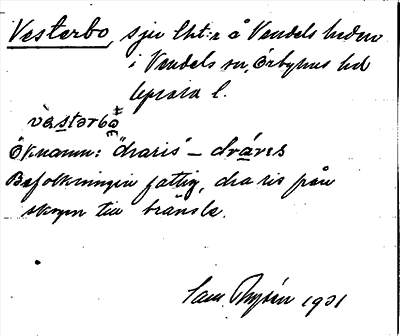 Vesterbo, sju lht:r å Vendels heden
i Vendels sn, Örbyhus hd
Uppsala l.
vàstərbω
Öknamn: "draris" – dráres
Befolkningen fattig, dra ris från
skogen till bränsle.
Sam. 1931